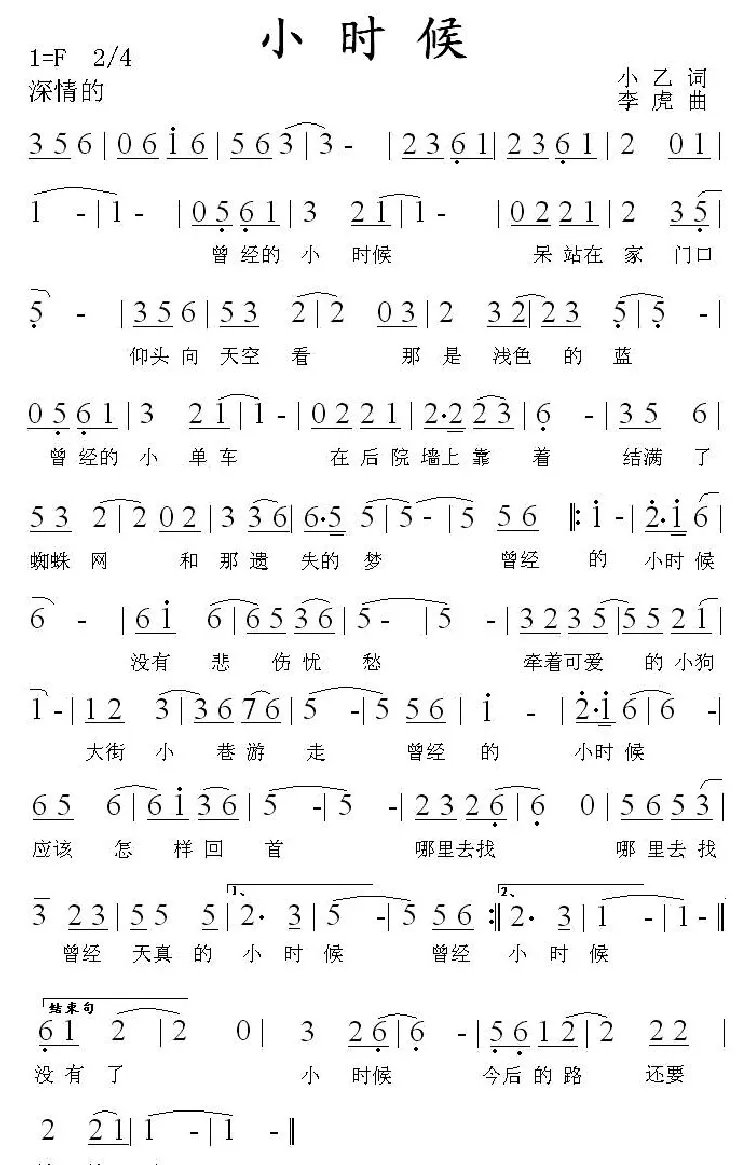 小时候
1=F 2/4
小乙词
深情的
李虎曲
356|0616|563|3-|2361|2361|2 01|
1 -|1-|0561|3 21|1-|0221|2 35|
曾经的小时候 呆站在家门口
5 -|356|53 2|2 03|2 32|23 5|5 -|
仰头向天空看 那是浅色的蓝
0561|3 21|1-|0221|2·223|6 -|35 6|
曾经的小单车 在后院墙上靠着 结满了
53 2|2 02|3 36|6·5 5|5-|5 56 ‖:1 -|2·1 6|
蜘蛛网 和那遗失的梦 曾经的小时候
6 -|61 6|65 36|5 -|5 -|3235|5521|
没有悲伤忧愁 牵着可爱的小狗
1-|12 3|36 76|5 -|5 56|1 -|2·1 6|6 -|
大街小巷游走 曾经的小时候
65 6|61 36|5 -|5 -|23 26|6 0|5653|
应该怎样回首 哪里去找 哪里去找
1、 2、
3 23|55 5|2· 3|5 -|5 56:‖2· 3|1 -|1-|
曾经天真的小时候 曾经小时候
结束句
61 2|2 0|3 26|6 -|56 12|2 22|
没有了 小时候 今后的路 还要
2 21|1 -|1 -‖